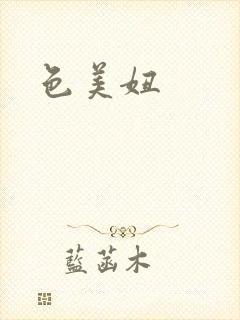 色美妞
藍菡木